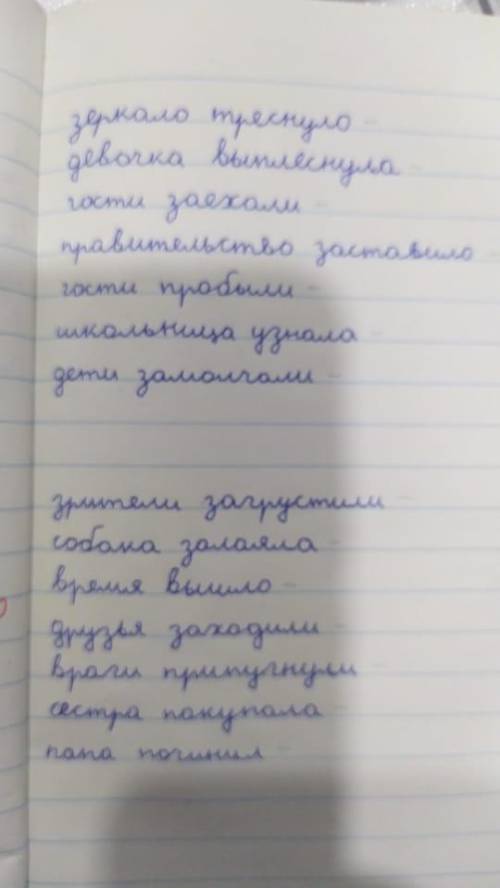 зеркало треснуло -
девочка выплеснула -
гости заехали -
правительство заставило -
гости пробыли -
школьница узнала -
дети замолчали -
зрители загрустили -
собака залаяла -
время вышло -
друзья заходили -
враги припугнули -
сестра покупала -
папа починил -